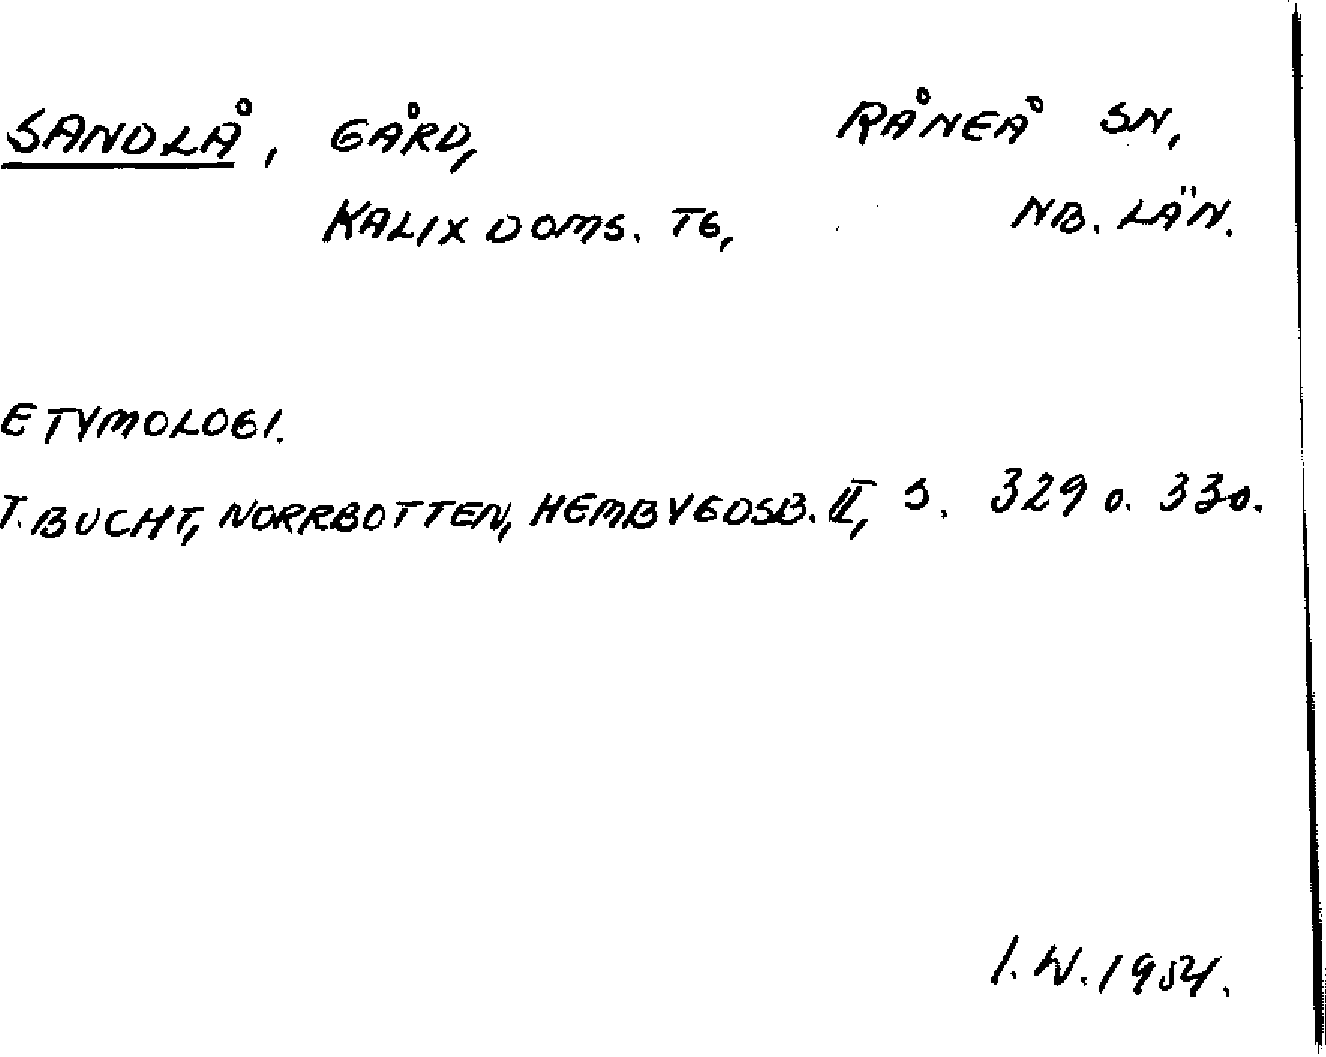 SANDLÅ, GÅRD, RÅNEÅ SN,
KALIX DOMS. TG, NB. LÄN.
ETYMOLOGI.
T. BUCHT, NORRBOTTEN, HEMBYGDSB. II, S. 329 O. 330.
I. W. 1954.